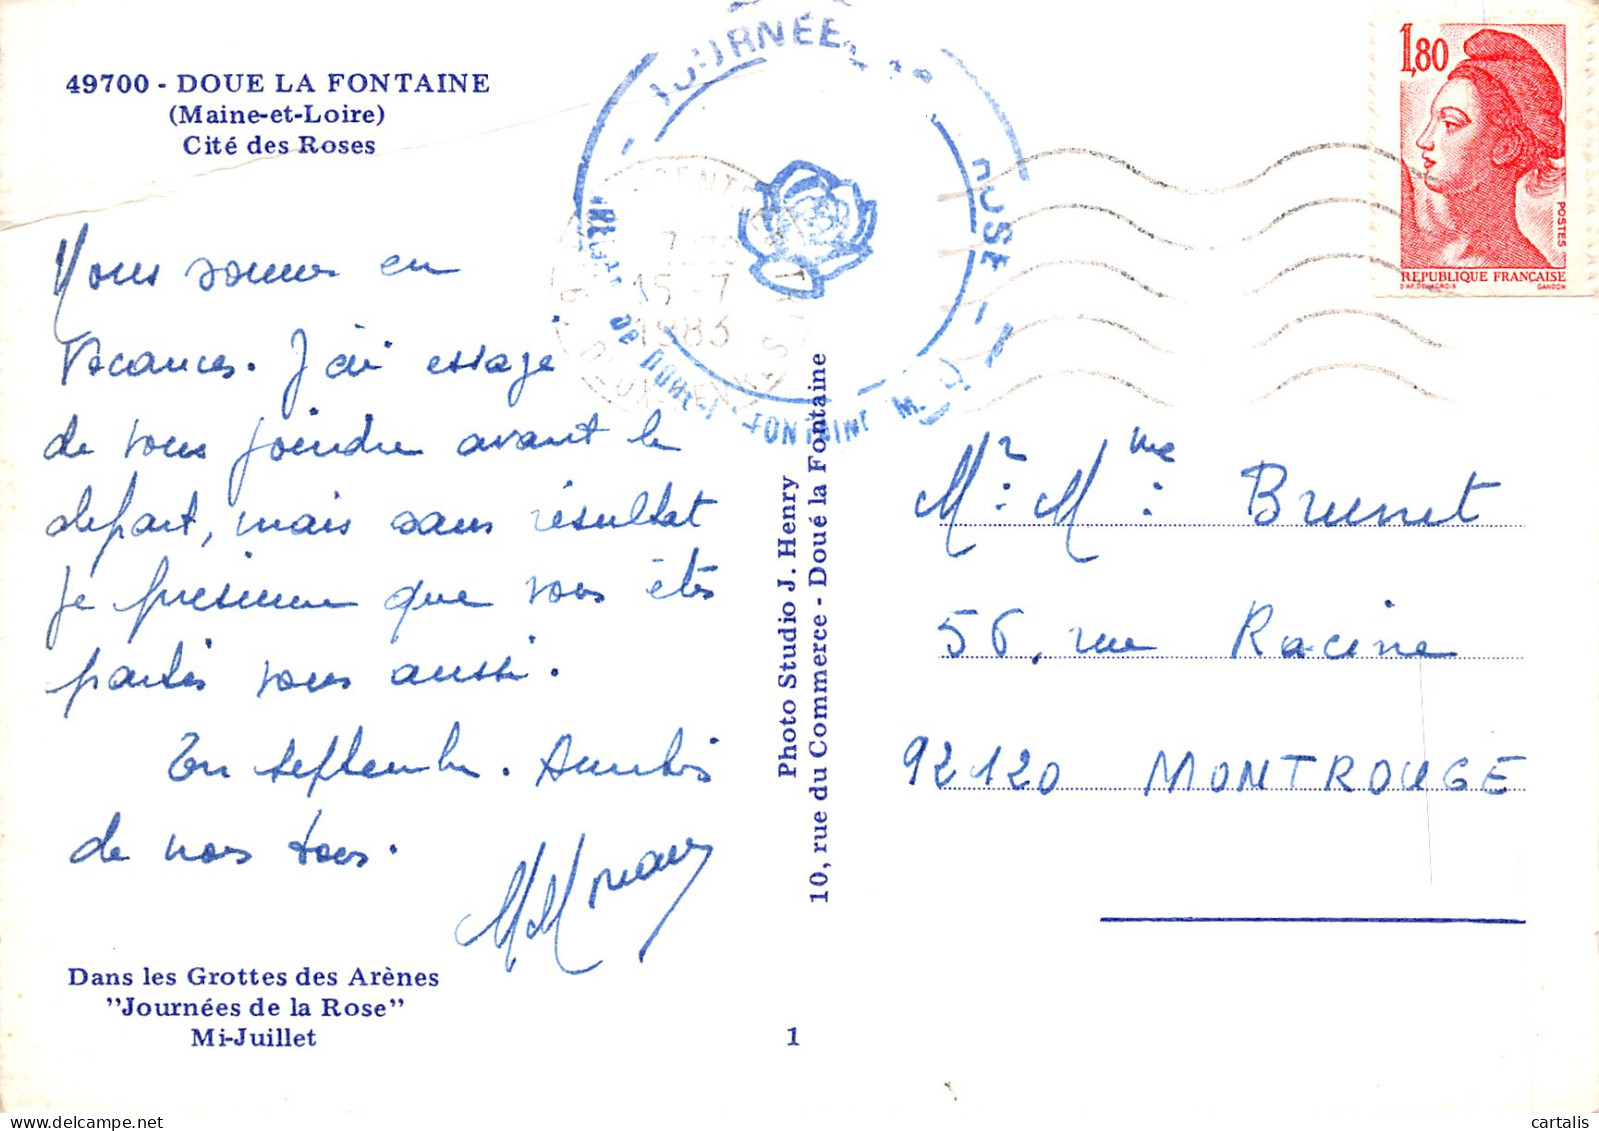 49700 - DOUE LA FONTAINE
(Maine-et-Loire)
Cité des Roses
Nous sommes en
Vacances. J'ai essayé
de vous joindre avant le
départ, mais sans résultat
Je présume que vous êtes
partis vous aussi.
En septembre. Amitiés
de nous tous.
Dans les Grottes des Arènes
"Journées de la Rose"
Mi-Juillet
JOURNÉE
ROSE
FONTAINE
15-7
1983
Photo Studio J. Henry
10, rue du Commerce - Doué la Fontaine
1
1,80
POSTES
REPUBLIQUE FRANÇAISE
D'AP. DELACROIX GANDON
Mr. Mme. Brunet
56, rue Racine
92120 MONTROUGE
cartalis